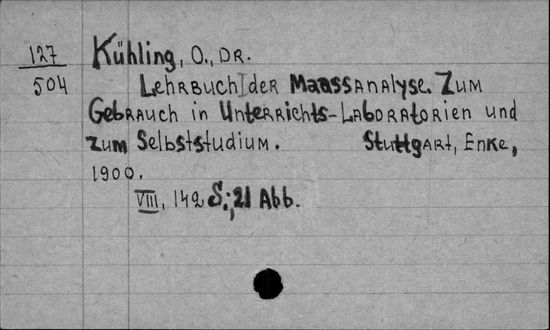 127 Kühling, O., DR.
504 Lehrbuch der Maassanalyse. Zum
Gebrauch in Unterrichts-Laboratorien und
zum Selbststudium. Stuttgart, Enke,
1900.
VIII, 142 S.; 21 Abb.